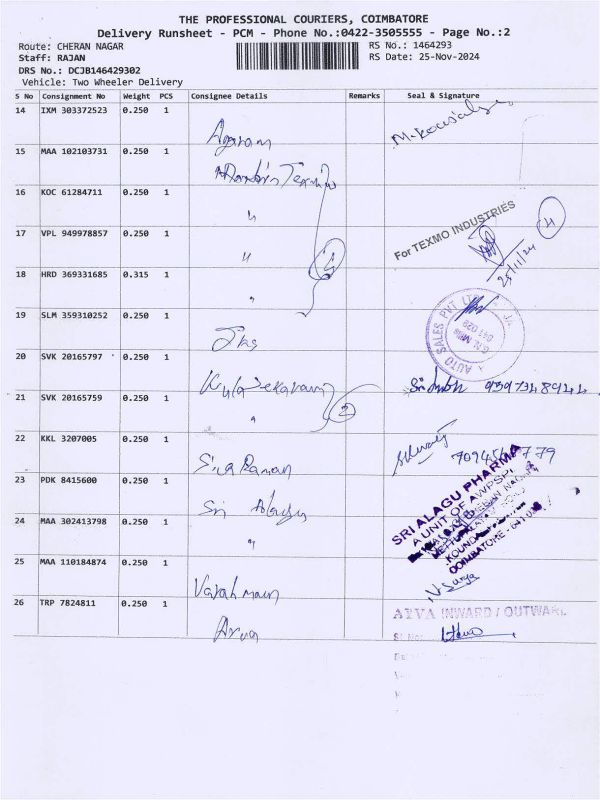 THE PROFESSIONAL COURIERS, COIMBATORE
Delivery Runsheet - PCM - Phone No.:0422-3505555 - Page No.:2
Route: CHERAN NAGAR
RS No.: 1464293
Staff: RAJAN
RS Date: 25-Nov-2024
DRS No.: DCJB146429302
Vehicle: Two Wheeler Delivery
S No Consignment No Weight PCS Consignee Details Remarks Seal & Signature
14 IXM 303372523 0.250 1 Agaram
15 MAA 102103731 0.250 1
16 KOC 61284711 0.250 1 "
17 VPL 949978857 0.250 1 "
For TEXMO INDUSTRIES
25/11/24
18 HRD 369331685 0.315 1 "
19 SLM 359310252 0.250 1
AUTO SALES PVT LTD
20 SVK 20165797 0.250 1 Kulasekaran
21 SVK 20165759 0.250 1 " 2
22 KKL 3207005 0.250 1 Siva Raman
23 PDK 8415600 0.250 1 Sri Alagu
SRI ALAGU PHARMA
A UNIT OF AWPSPL
24 MAA 302413798 0.250 1 "
COIMBATORE
25 MAA 110184874 0.250 1
N. Surya
26 TRP 7824811 0.250 1
INWARD / OUTWARD
Sl No: